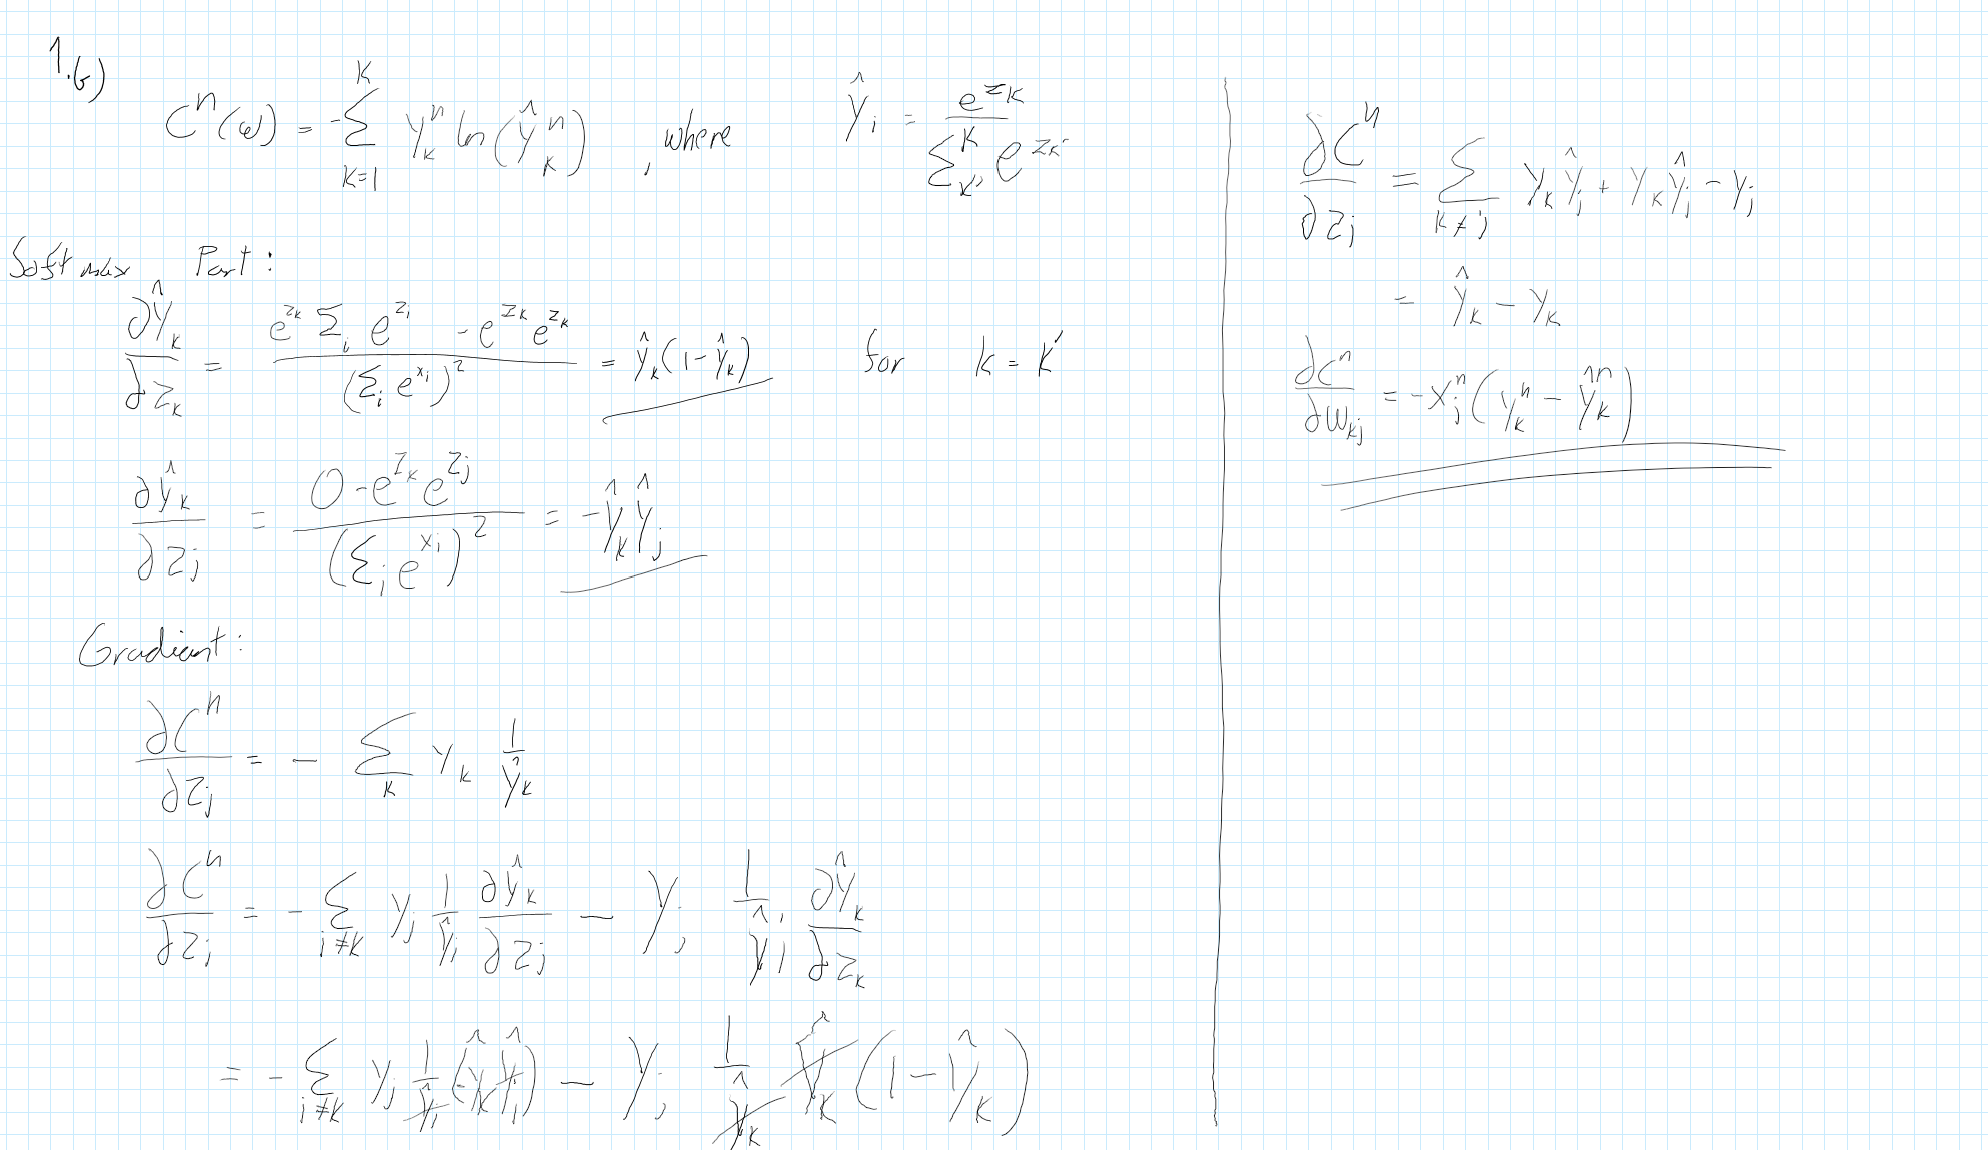 1.b)
Cⁿ(ω) = -∑_{k=1}^{K} y_k^n ln(ŷ_k^n) , where ŷ_i = e^{z_k} / ∑_{k'}^{K} e^{z_{k'}}
Softmax Part:
∂ŷ_k/∂z_k = (e^{z_k} ∑_i e^{z_i} - e^{z_k} e^{z_k}) / (∑_i e^{x_i})² = ŷ_k(1-ŷ_k) for k = k'
∂ŷ_k/∂z_j = (0 - e^{z_k} e^{z_j}) / (∑_i e^{x_i})² = -ŷ_k ŷ_j
Gradient:
∂Cⁿ/∂z_j = - ∑_k y_k 1/ŷ_k
∂Cⁿ/∂z_j = - ∑_{i≠k} y_j 1/ŷ_j ∂ŷ_k/∂z_j - y_j 1/ŷ_j ∂ŷ_k/∂z_k
= - ∑_{i≠k} y_j 1/ŷ_j (-ŷ_k ŷ_j) - y_j 1/ŷ_k ŷ_k (1-ŷ_k)
∂Cⁿ/∂z_j = ∑_{k≠j} y_k ŷ_j + y_k ŷ_j - y_j
= ŷ_k - y_k
∂Cⁿ/∂w_{kj} = -x_j^n (y_k^n - ŷ_k^n)